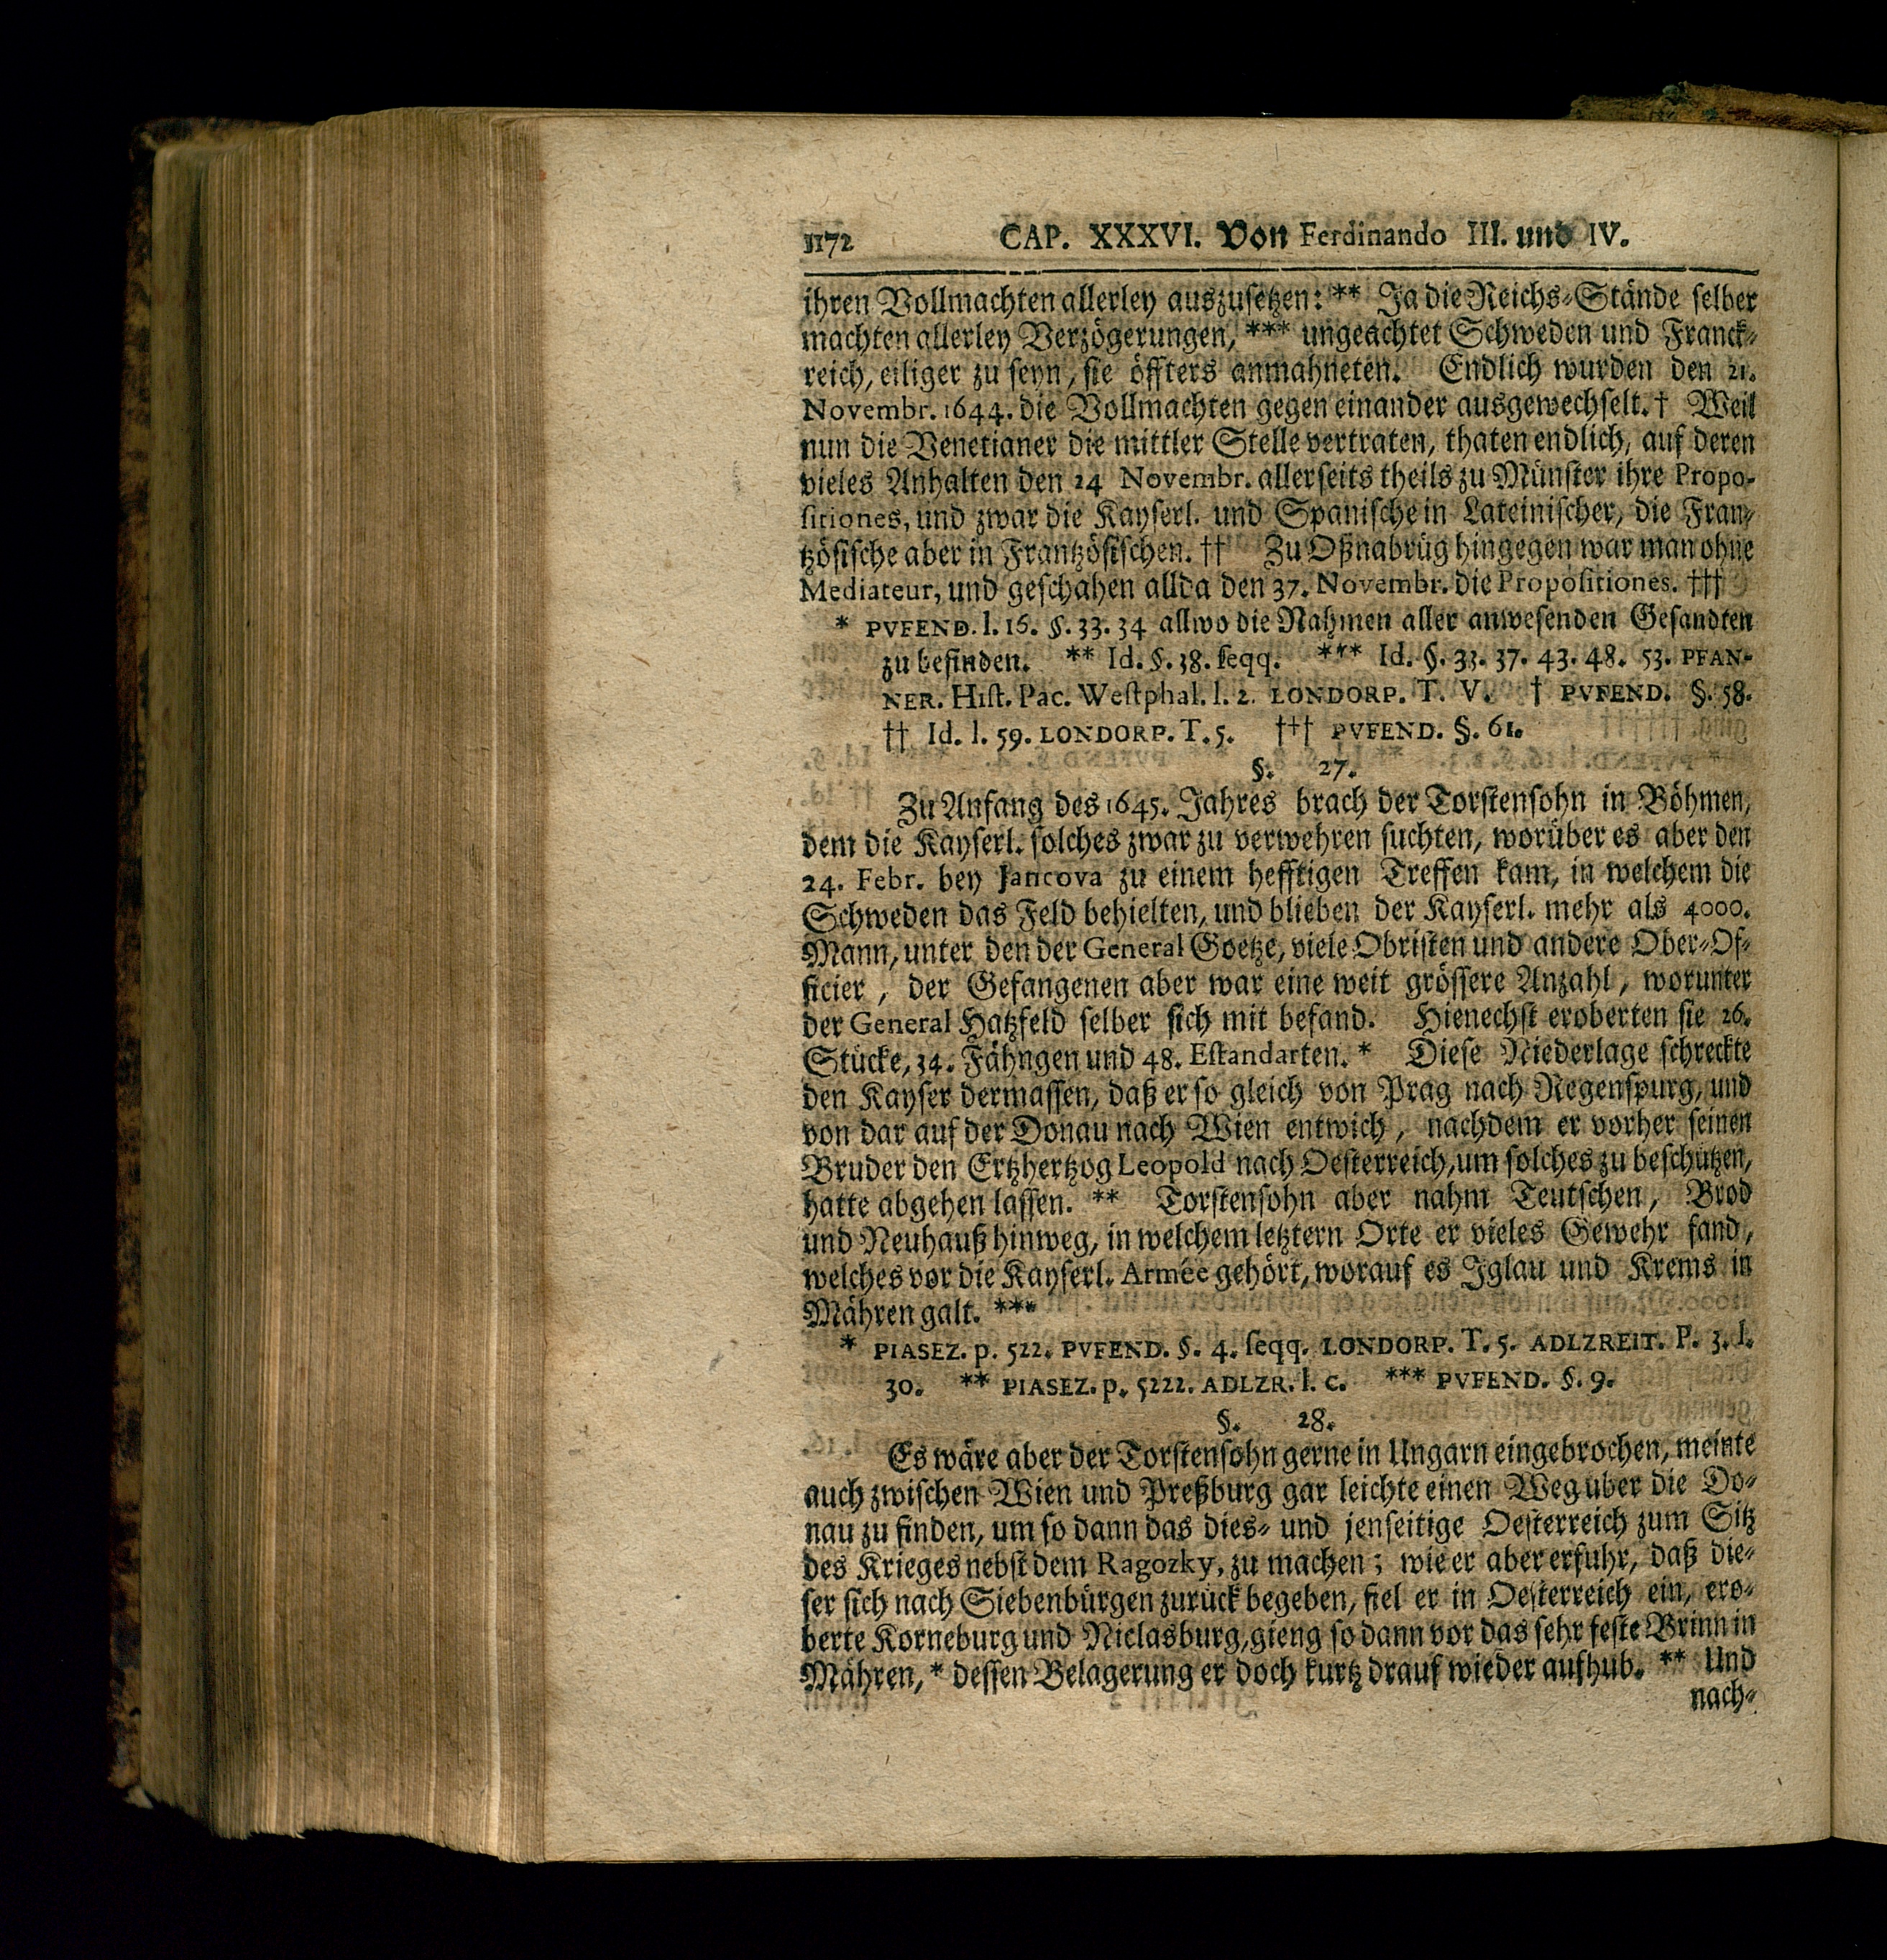 1172 CAP. XXXVI. Von Ferdinando III. und IV.
ihren Vollmachten allerley auszusetzen: ** Ja die Reichs-Stände selber
machten allerley Verzögerungen, *** ungeachtet Schweden und Franck-
reich, eiliger zu seyn, sie öffters anmahneten. Endlich wurden den 21.
Novembr. 1644. die Vollmachten gegen einander ausgewechselt. † Weil
nun die Venetianer die mittler Stelle vertraten, thaten endlich, auf deren
vieles Anhalten den 24 Novembr. allerseits theils zu Münster ihre Propo-
sitiones, und zwar die Kayserl. und Spanische in Lateinischer, die Fran-
tzösische aber in Frantzösischen. †† Zu Oßnabrüg hingegen war man ohne
Mediateur, und geschahen allda den 37. Novembr. die Propositiones. †††
* PVFEND. l. 16. §. 33. 34 allwo die Nahmen aller anwesenden Gesandten
zu befinden. ** Id. §. 38. seqq. *** Id. §. 33. 37. 43. 48. 53. PFAN-
NER. Hist. Pac. Westphal. l. 2. LONDORP. T. V. † PVFEND. §. 58.
†† Id. l. 59. LONDORP. T. 5. ††† PVFEND. §. 61.
§. 27.
Zu Anfang des 1645. Jahres brach der Torstensohn in Böhmen,
dem die Kayserl. solches zwar zu verwehren suchten, worüber es aber den
24. Febr. bey Jancova zu einem hefftigen Treffen kam, in welchem die
Schweden das Feld behielten, und blieben der Kayserl. mehr als 4000.
Mann, unter den der General Goetze, viele Obristen und andere Ober-Of-
ficier, der Gefangenen aber war eine weit grössere Anzahl, worunter
der General Hatzfeld selber sich mit befand. Hienechst eroberten sie 26.
Stücke, 34. Fähngen und 48. Estandarten. * Diese Niederlage schreckte
den Kayser dermassen, daß er so gleich von Prag nach Regenspurg, und
von dar auf der Donau nach Wien entwich, nachdem er vorher seinen
Bruder den Ertzhertzog Leopold nach Oesterreich, um solches zu beschützen,
hatte abgehen lassen. ** Torstensohn aber nahm Teutschen, Brod
und Neuhauß hinweg, in welchem letztern Orte er vieles Gewehr fand,
welches vor die Kayserl. Armée gehört, worauf es Iglau und Krems in
Mähren galt. ***
* PIASEZ. p. 522. PVFEND. §. 4. seqq. LONDORP. T. 5. ADLZREIT. P. 3. l.
30. ** PIASEZ. p. 5222. ADLZR. l. c. *** PVFEND. §. 9.
§. 28.
Es wäre aber der Torstensohn gerne in Ungarn eingebrochen, meinte
auch zwischen Wien und Preßburg gar leichte einen Weg über die Do-
nau zu finden, um so dann das dies- und jenseitige Oesterreich zum Sitz
des Krieges nebst dem Ragozky, zu machen; wie er aber erfuhr, daß die-
ser sich nach Siebenbürgen zurück begeben, fiel er in Oesterreich ein, ero-
berte Korneburg und Niclasburg, gieng so dann vor das sehr feste Brinn in
Mähren, * dessen Belagerung er doch kurtz drauf wieder aufhub. ** Und
nach-